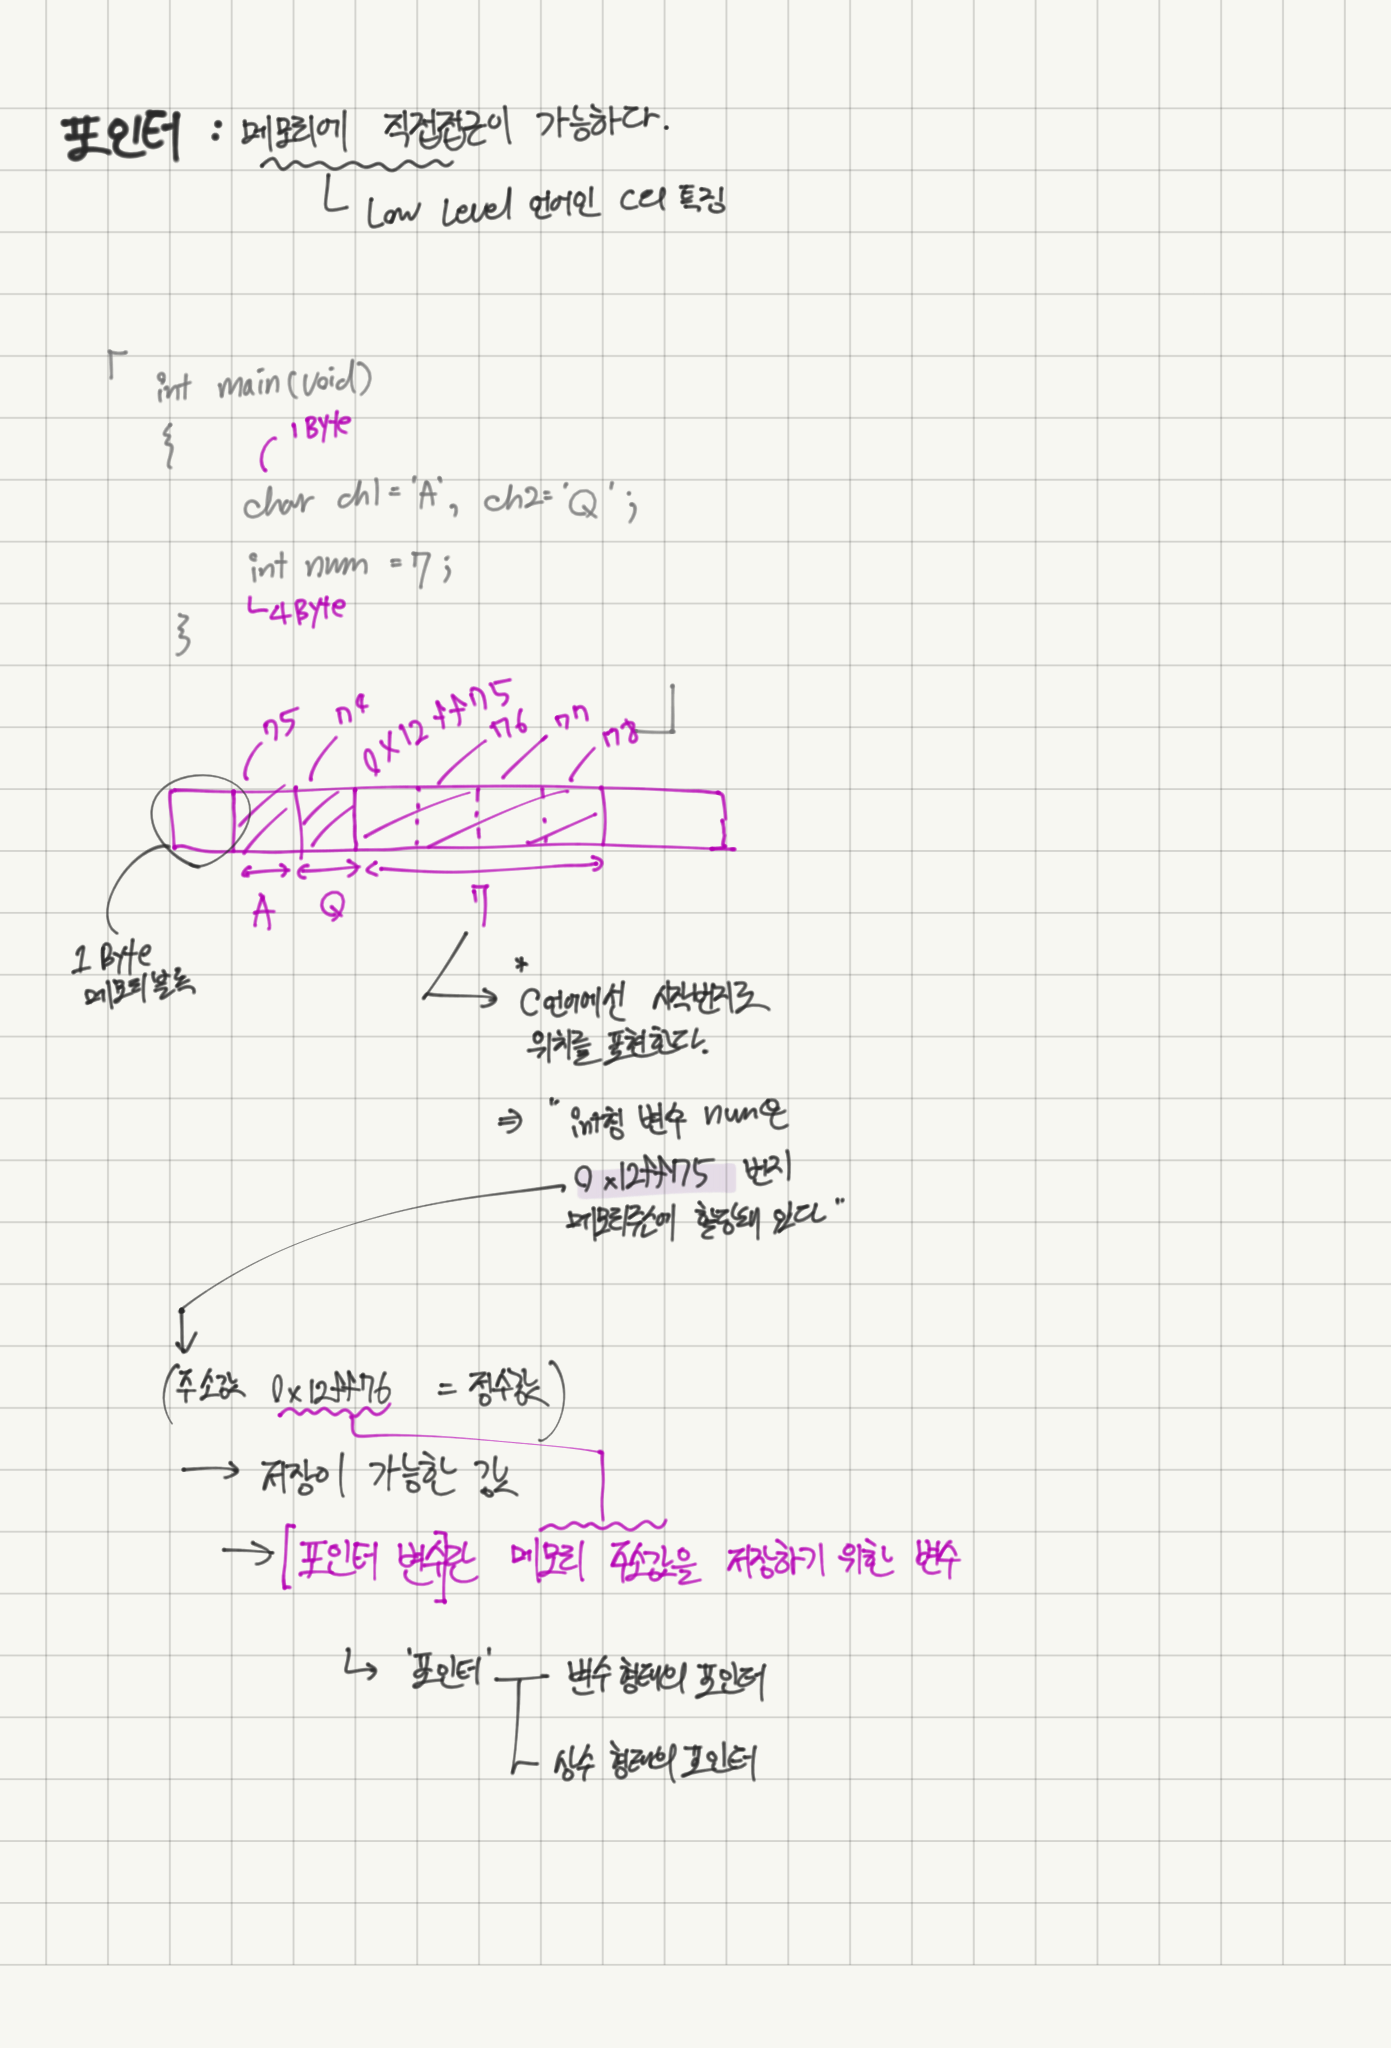 포인터 : 메모리에 직접접근이 가능하다.
Low Level 언어인 C의 특징
int main(void)
1 Byte
{
char ch1='A', ch2='Q';
int num = 7;
4 Byte
}
75 74 0x12ff75 76 77 78
A Q 7
1 Byte
메모리 블록
*
C언어에선 시작번지로
위치를 표현한다.
⇒ "int형 변수 num은
0x12ff75 번지
메모리주소에 할당돼 있다"
(주소값 0x12ff76 = 정수값)
→ 저장이 가능한 값
→ [포인터 변수]란 메모리 주소값을 저장하기 위한 변수
↳ '포인터' 변수 형태의 포인터
상수 형태의 포인터